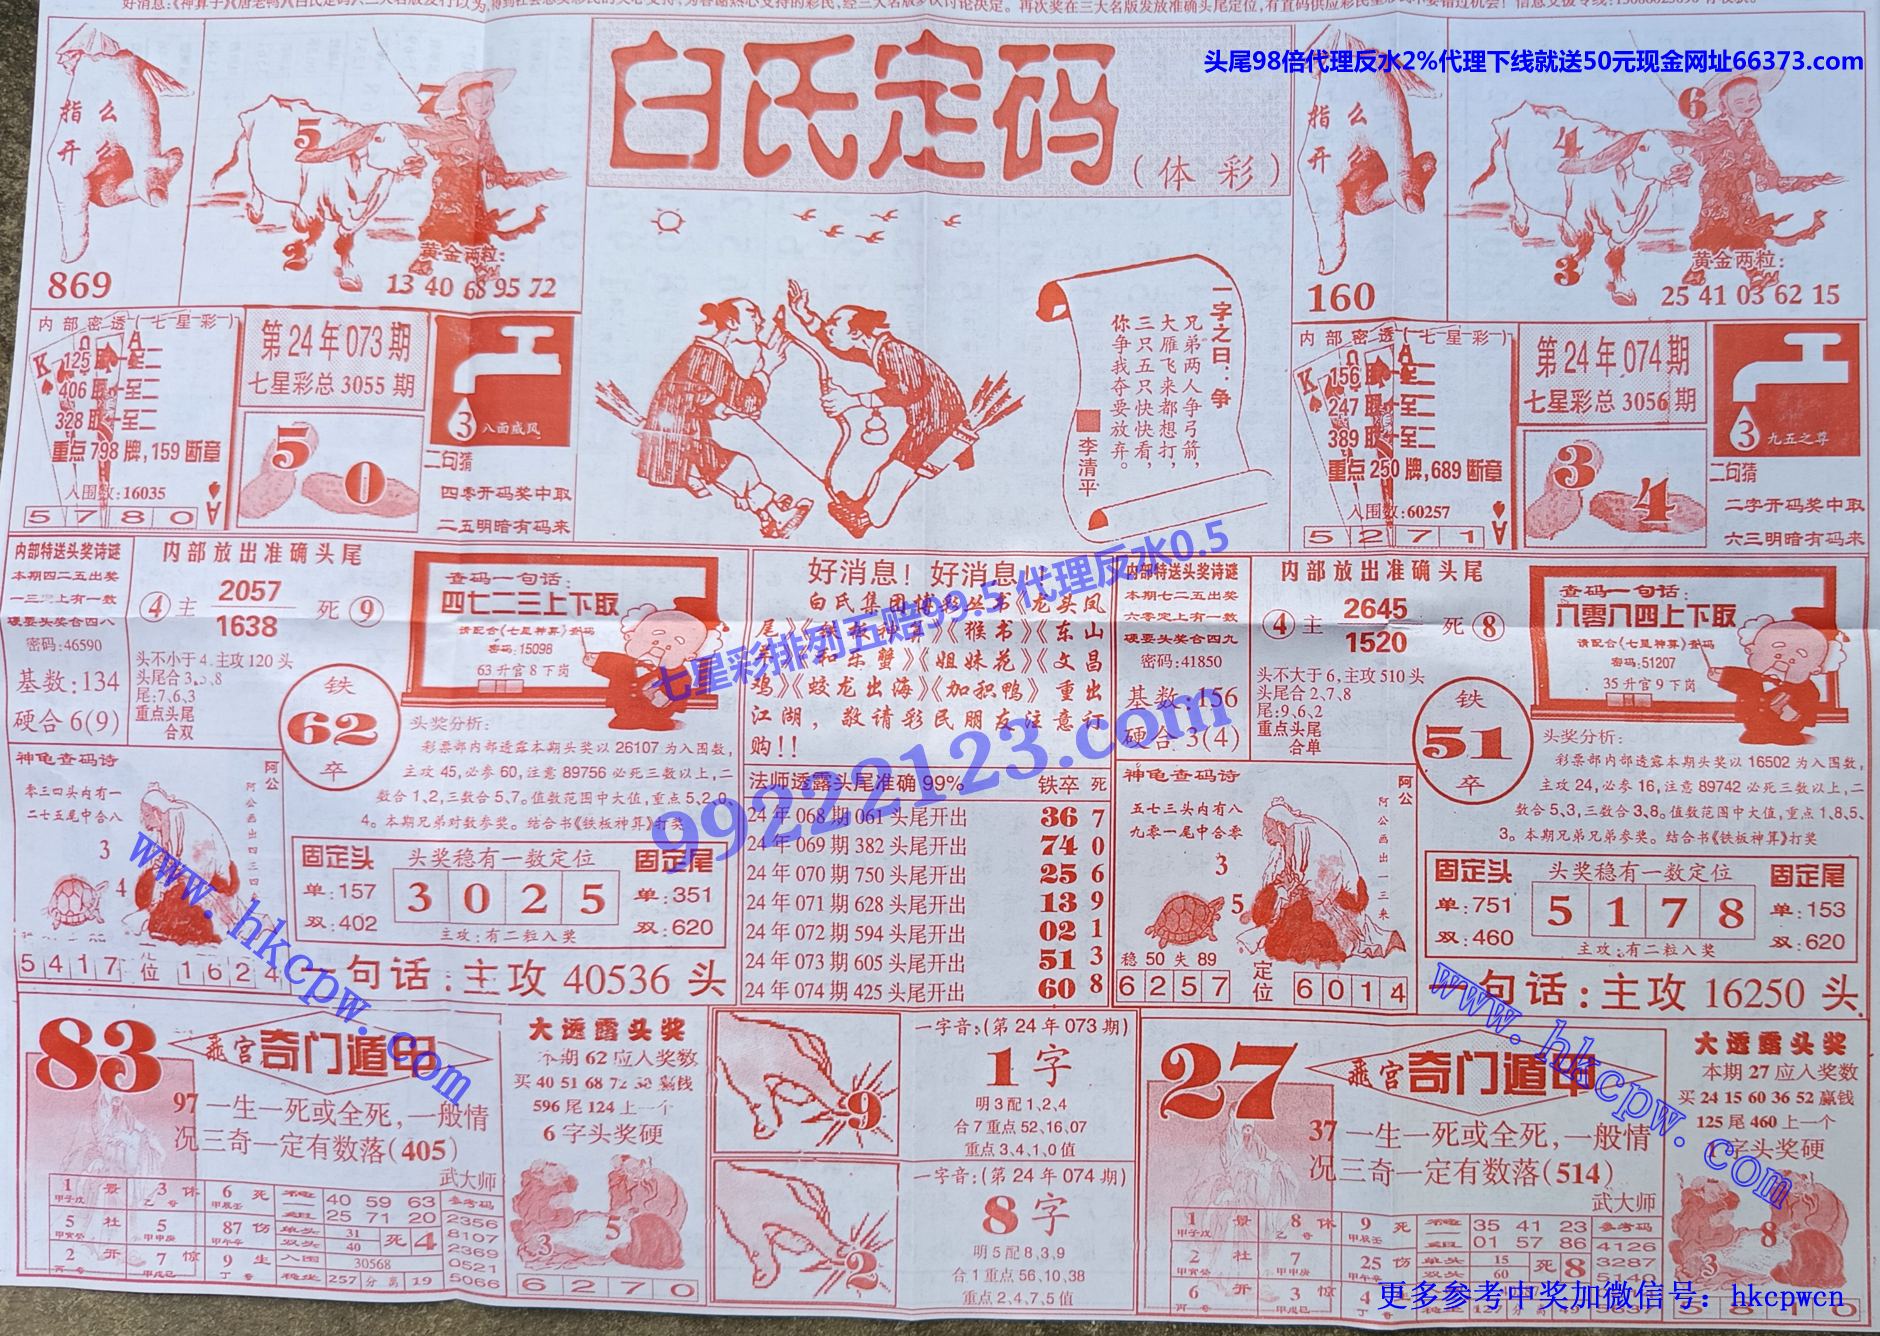 头尾98倍代理反水2%代理下线就送50元现金网址66373.com
白氏定码
(体彩)
指么
开么
869
5
7
2
黄金两粒:
13 40 68 95 72
指么
开么
160
4
6
3
黄金两粒:
25 41 03 62 15
一字之曰:争
兄弟两人争弓箭,
大雁飞来都想打,
三只五只快快看,
你争我夺要放弃。
李清平
内部密透(七星彩)
125
406
328
重点798牌,159断章
入围数:16035
5 7 8 0
第24年073期
七星彩总3055期
5 0
3 八面威风
二句猜
四零开码奖中取
二五明暗有码来
内部密透(七星彩)
156
247
389
重点250牌,689断章
入围数:60257
5 2 7 1
第24年074期
七星彩总3056期
3 4
3 九五之尊
二句猜
二字开码奖中取
六三明暗有码来
内部特送头奖诗谜
本期四二五出奖
一三定上有一数
硬要头奖合四八
密码:46590
基数:134
硬合6(9)
内部放出准确头尾
④主 2057 死⑨
1638
头不小于4,主攻120头
尾:7,6,3
重点头尾
合双
铁
62
卒
查码一句话:
四七二三上下取
请配合《七星神算》查码
密码:15098
63升官8下岗
头奖分析:
彩票部内部透露本期头奖以26107为入围数,
主攻45,必参60,注意89756必死三数以上,二
数合1、2,三数合5、7。值数范围中大值,重点5、2、9、
4。本期兄弟对数参奖。结合书《铁板神算》打奖
神龟查码诗
零三四头内有一
二七五尾中合八
3
4
阿公
5 4 1 7 位 1 6 2 4
固定头 头奖稳有一数定位 固定尾
单:157 3 0 2 5 单:351
双:402 双:620
主攻:有二粒入奖
一句话:主攻40536头
好消息!好消息!!
江湖,敬请彩民朋友注意订
购!!
七星彩排列五赔99.5代理反水0.5
99222123.com
法师透露头尾准确99% 铁卒 死
24年068期061头尾开出 36 7
24年069期382头尾开出 74 0
24年070期750头尾开出 25 6
24年071期628头尾开出 13 9
24年072期594头尾开出 02 1
24年073期605头尾开出 51 3
24年074期425头尾开出 60 8
内部特送头奖诗谜
本期七二五出奖
六零定上有一数
硬要头奖合四九
密码:41850
基数:156
硬合3(4)
内部放出准确头尾
④主 2645 死⑧
1520
头不大于6,主攻510头
头尾合2,7,8
尾:9,6,2
重点头尾
合单
铁
51
卒
查码一句话:
八零八四上下取
请配合《七星神算》查码
密码:51207
35升官9下岗
头奖分析:
彩票部内部透露本期头奖以16502为入围数,
主攻24,必参16,注意89742必死三数以上,二
数合5、3,三数合3、8。值数范围中大值,重点1、8、5、
3。本期兄弟兄弟参奖。结合书《铁板神算》打奖
神龟查码诗
五七三头内有八
九零一尾中合零
3
5
阿公
阿公画出一三来
稳50失89
6 2 5 7 定位 6 0 1 4
固定头 头奖稳有一数定位 固定尾
单:751 5 1 7 8 单:153
双:460 双:620
主攻:有二粒入奖
一句话:主攻16250头
www.hkcpw.com
www.hkcpw.com
83
飛宫奇门遁甲
97一生一死或全死,一般情
况三奇一定有数落(405)
武大师
1 景 3 休 6 死
5 杜 5 87 伤
2 开 7 惊 9 生
40 59 63
25 71 20
单头 31
双头 40
死4
入围 30568
257分离19
参考码
2356
8107
2369
0521
5066
大透露头奖
本期62应入奖数
596尾124上一个
6字头奖硬
3 5
6 2 7 0
9
2
一字音:(第24年073期)
1字
明3配1、2、4
合7重点52、16、07
重点3、4、1、0值
一字音:(第24年074期)
8字
明5配8、3、9
合1重点56、10、38
重点2、4、7、5值
27
飛宫奇门遁甲
37一生一死或全死,一般情
况三奇一定有数落(514)
武大师
1 景 8 休 9 死
2 杜 7 25 伤
6 开 3 惊
35 41 23
01 57 86
单头 15
双头 60
死8
参考码
4126
3287
大透露头奖
本期27应入奖数
买24 15 60 36 52赢钱
125尾460上一个
1字头奖硬
3 8
5 8 1 0
更多参考中奖加微信号:hkcpwcn